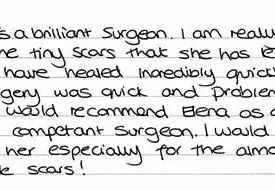 s a brilliant Surgeon. I am really
tiny scars that she has
have healed incredibly quick
gery was quick and problem
would recommend Elena as a
competant Surgeon. I would
her especially for the
scars!